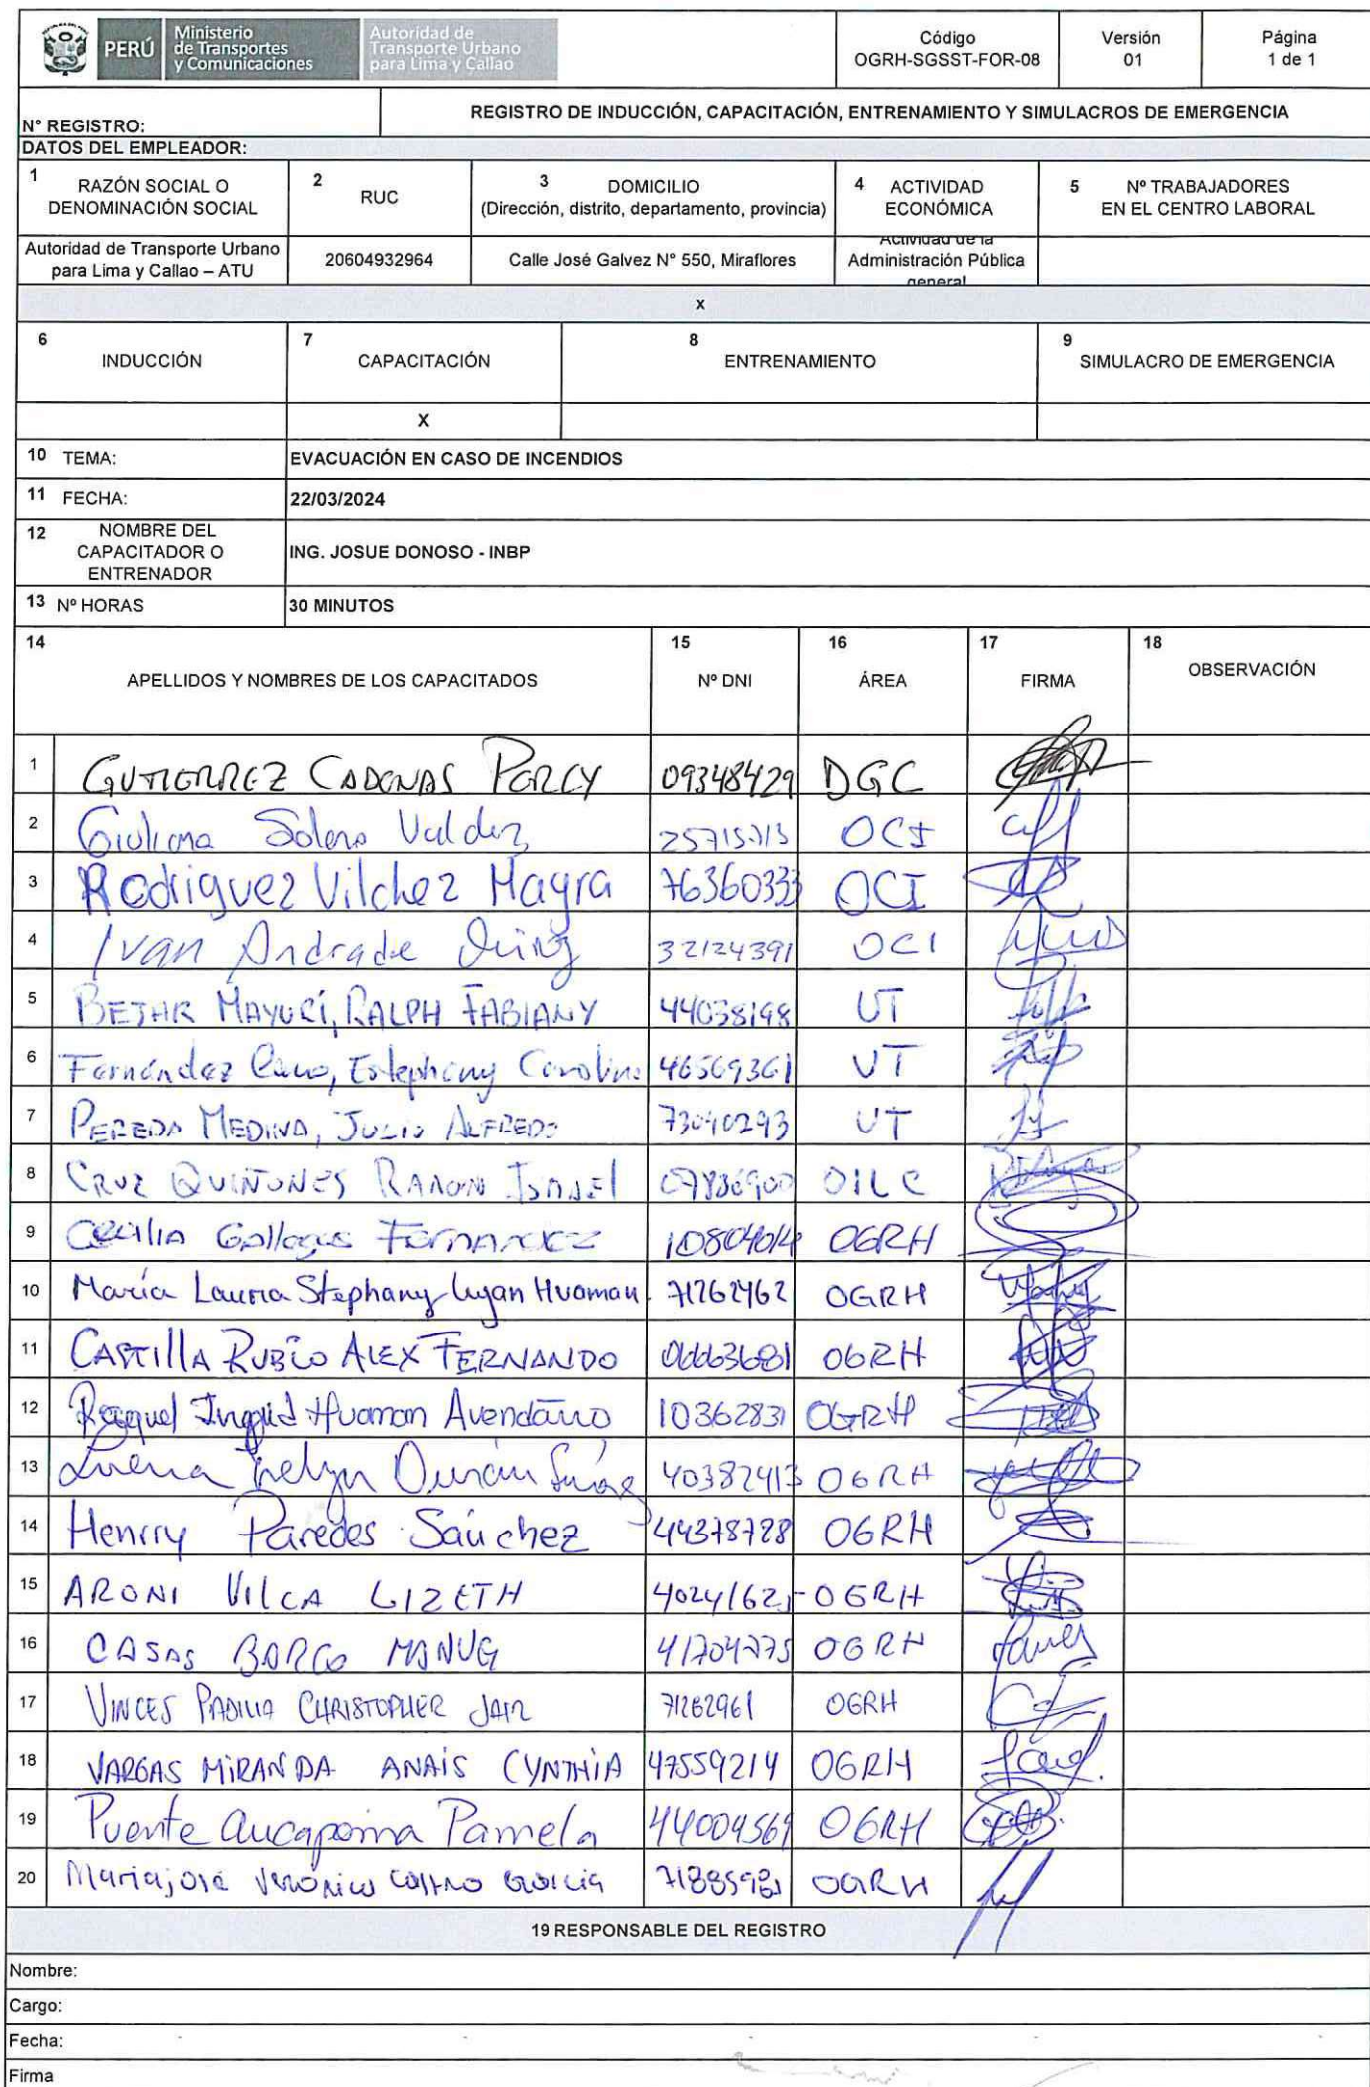 PERÚ
Ministerio
de Transportes
y Comunicaciones
Autoridad de
Transporte Urbano
para Lima y Callao
Código
OGRH-SGSST-FOR-08
Versión
01
Página
1 de 1
N° REGISTRO:
REGISTRO DE INDUCCIÓN, CAPACITACIÓN, ENTRENAMIENTO Y SIMULACROS DE EMERGENCIA
DATOS DEL EMPLEADOR:
1 RAZÓN SOCIAL O
DENOMINACIÓN SOCIAL
2 RUC
3 DOMICILIO
(Dirección, distrito, departamento, provincia)
4 ACTIVIDAD
ECONÓMICA
5 Nº TRABAJADORES
EN EL CENTRO LABORAL
Autoridad de Transporte Urbano
para Lima y Callao – ATU
20604932964
Calle José Galvez N° 550, Miraflores
Actividad de la
Administración Pública
general
x
6 INDUCCIÓN
7 CAPACITACIÓN
8 ENTRENAMIENTO
9 SIMULACRO DE EMERGENCIA
X
10 TEMA: EVACUACIÓN EN CASO DE INCENDIOS
11 FECHA: 22/03/2024
12 NOMBRE DEL
CAPACITADOR O
ENTRENADOR
ING. JOSUE DONOSO - INBP
13 Nº HORAS 30 MINUTOS
14 APELLIDOS Y NOMBRES DE LOS CAPACITADOS
15 Nº DNI
16 ÁREA
17 FIRMA
18 OBSERVACIÓN
1 GUTIERREZ CADENAS PERCY 09348429 DGC
2 Giuliana Solano Valdez OCI
3 Rodriguez Vilchez Mayra 76360333 OCI
4 Ivan Andrade 32124391 OCI
5 BEJAR MAYURÍ, RALPH FABIANY 44038198 UT
6 Fernández Cano, Estephany Carolina 46569361 UT
7 PEREDA MEDINA, JULIO ALFREDO 73040293 UT
8 CRUZ QUIÑONES RAMON ISMAEL OILC
9 Cecilia Gallegos Fernandez OGRH
10 María Laura Stephany Lujan Huaman 71262462 OGRH
11 CASTILLA RUBIO ALEX FERNANDO 06663681 OGRH
12 Raquel Ingrid Huaman Avendaño 10362831 OGRH
13 Durán 40382413 OGRH
14 Henrry Paredes Sánchez 44378728 OGRH
15 ARONI VILCA LIZETH 40241625 OGRH
16 CASAS BARCO 41704775 OGRH
17 VINCES PADILLA CHRISTOPHER JAIR 71262961 OGRH
18 VARGAS MIRANDA ANAÍS CYNTHIA 47559214 OGRH
19 Puente Aucapoma Pamela 44009569 OGRH
20 Mariajosé Verónica Castro García 71885981 OGRH
19 RESPONSABLE DEL REGISTRO
Nombre:
Cargo:
Fecha:
Firma